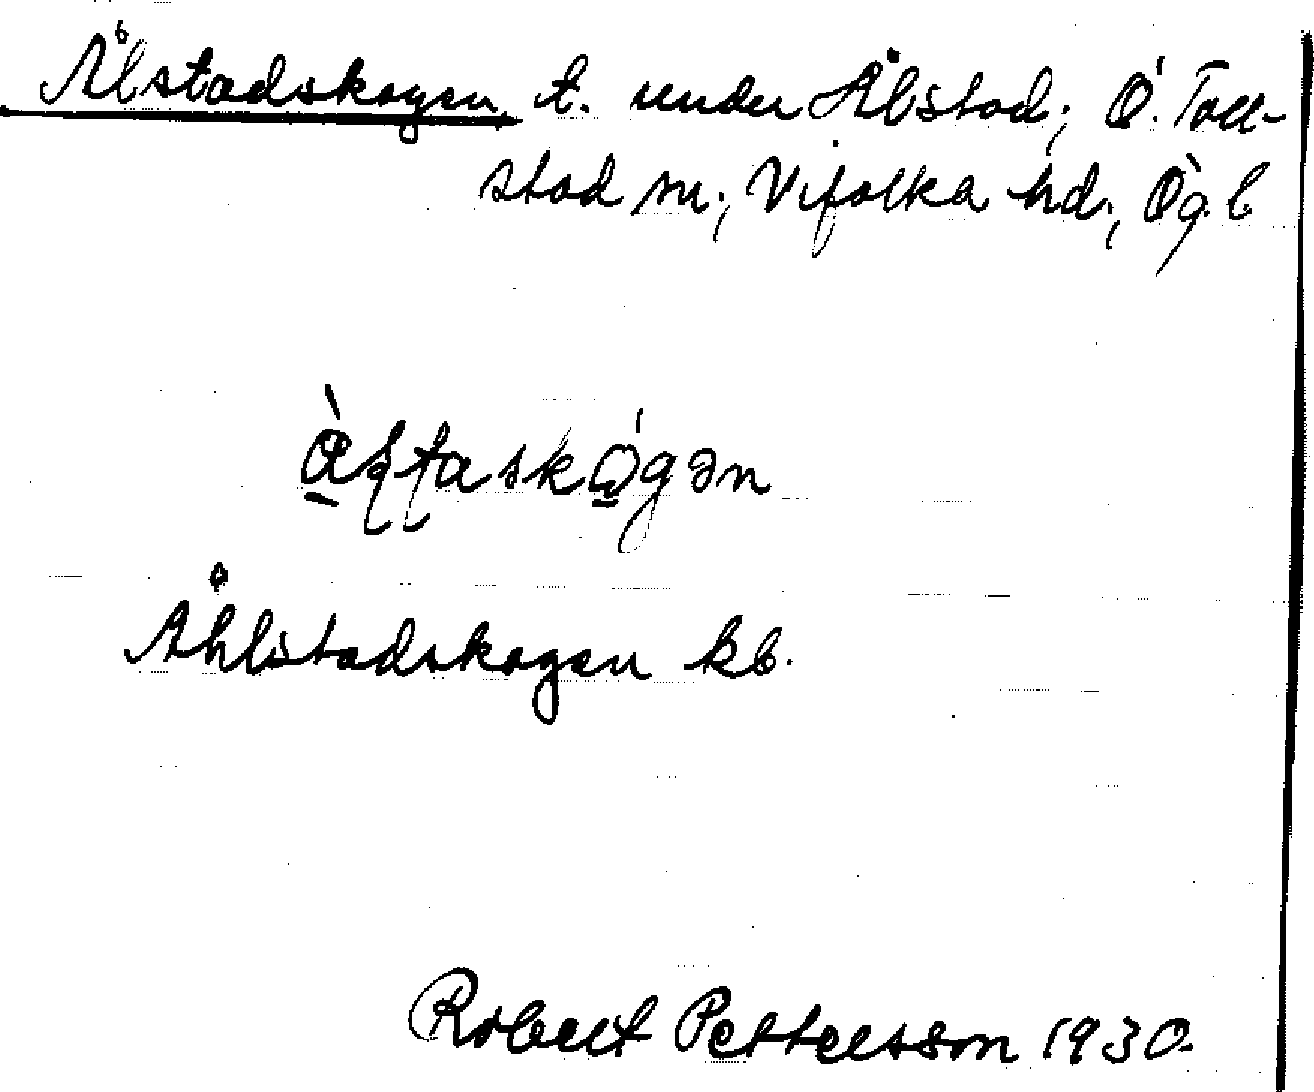 Ålstadskogen t. under Ålstad; Ö. Toll-
stad sn; Vifolka hd; Ög. l
Åhlstadskogen kb.
Robert Pettersson 1930